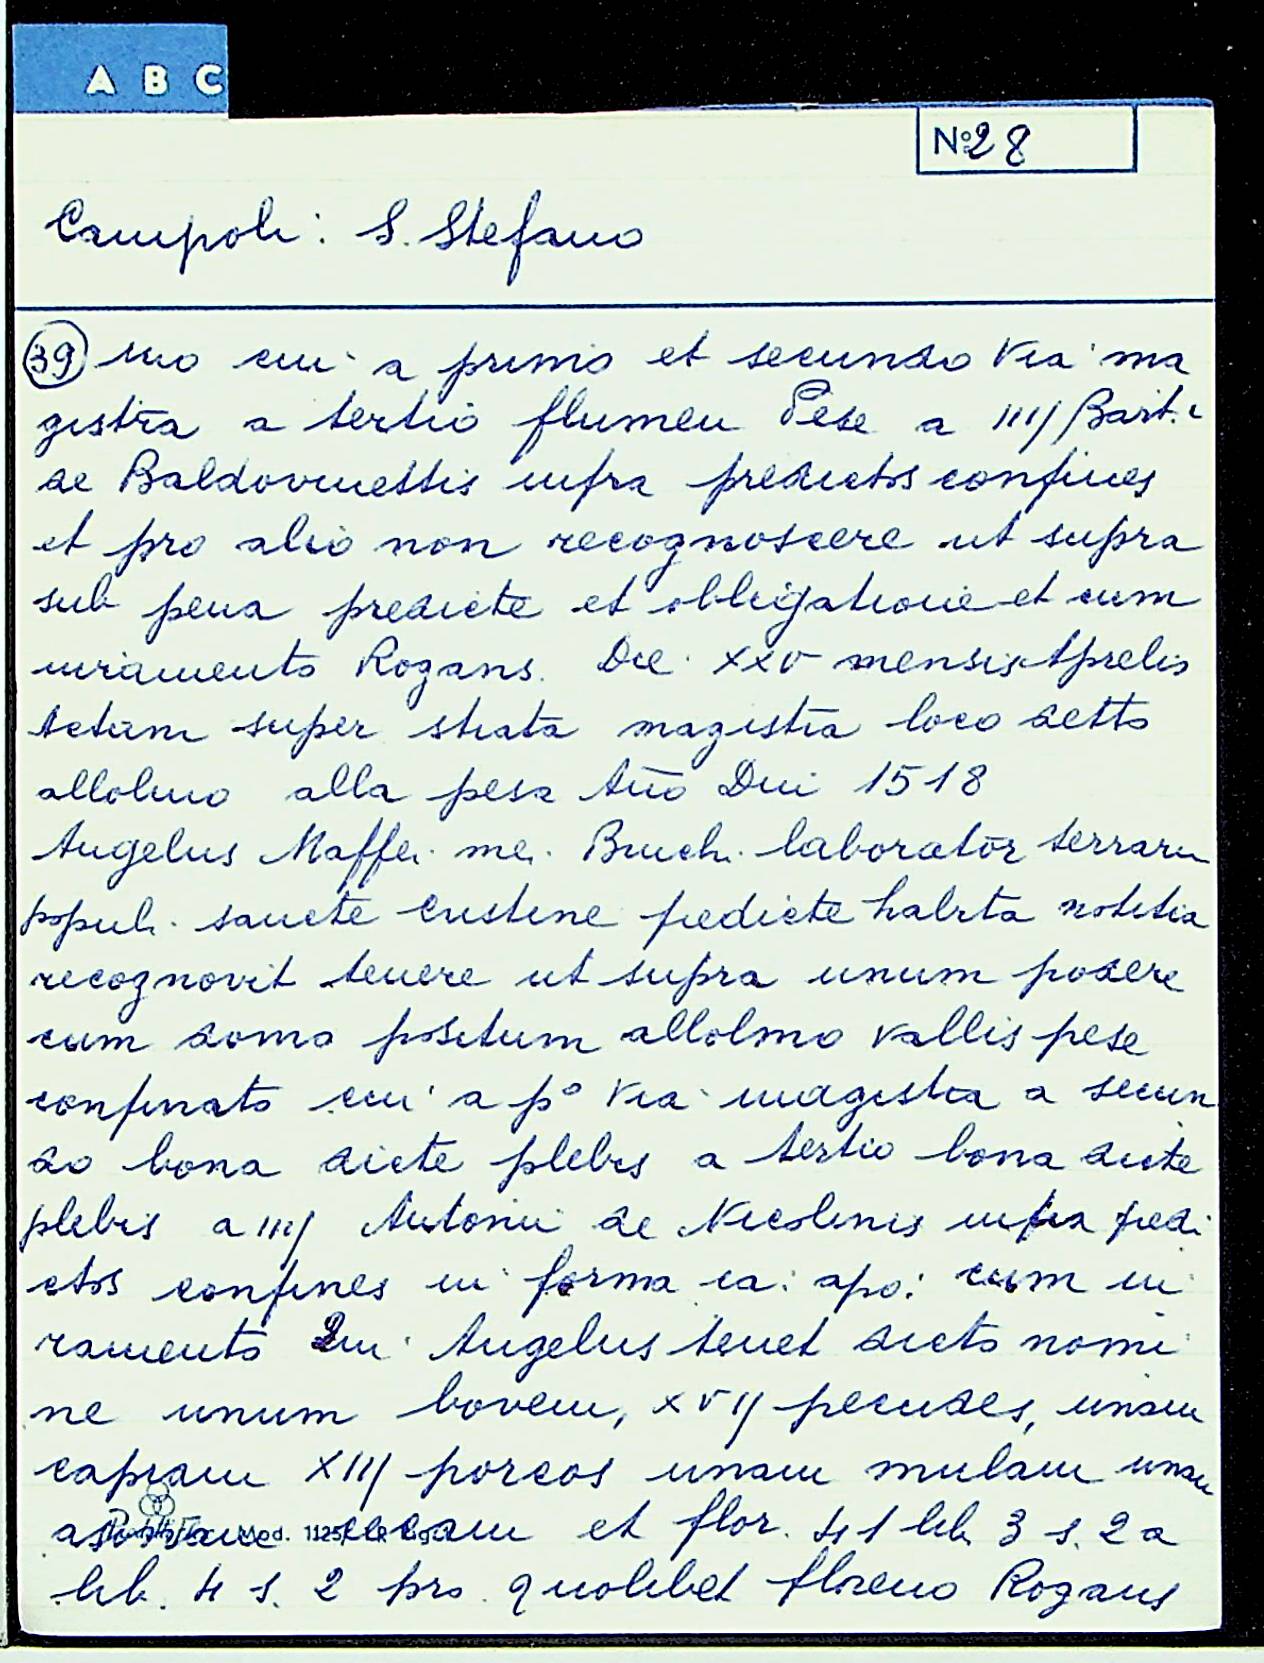 A B C
No 28
Campoli: S. Stefano
39 mo cui a primo et secundo via ma
gistra a tertio flumen Pese a IIIJ Bart.i
de Baldovinettis infra predictos confines
et pro alio non recognoscere ut supra
sub pena predicte et obligatione et cum
iuramento Rogans. Die XXV mensis Aprelis
Actum super strata magistra loco detto
allolmo alla pesa Año Dni 1518
Angelus Maffei me. Bruch. laborator terraru
populi sancte Cristine predicte habita notitia
recognovit tenere ut supra unum podere
cum domo positum allolmo vallis pese
confinato cui a p° via magistra a secun
do bona dicte plebis a tertio bona dicte
plebis a IIIJ Antonii de Nicolinis infra predi
ctos confines in forma ca: apo: cum iu
ramento Qui Angelus tenet dicto nomi
ne unum bovem, XVIJ pecudes, unam
capram XIIJ porcos unam mulam unam
Mod. 1125 et flor. 41 lib. 3 s. 2 a
lib. 4 s. 2 pro quolibet floreno Rogans